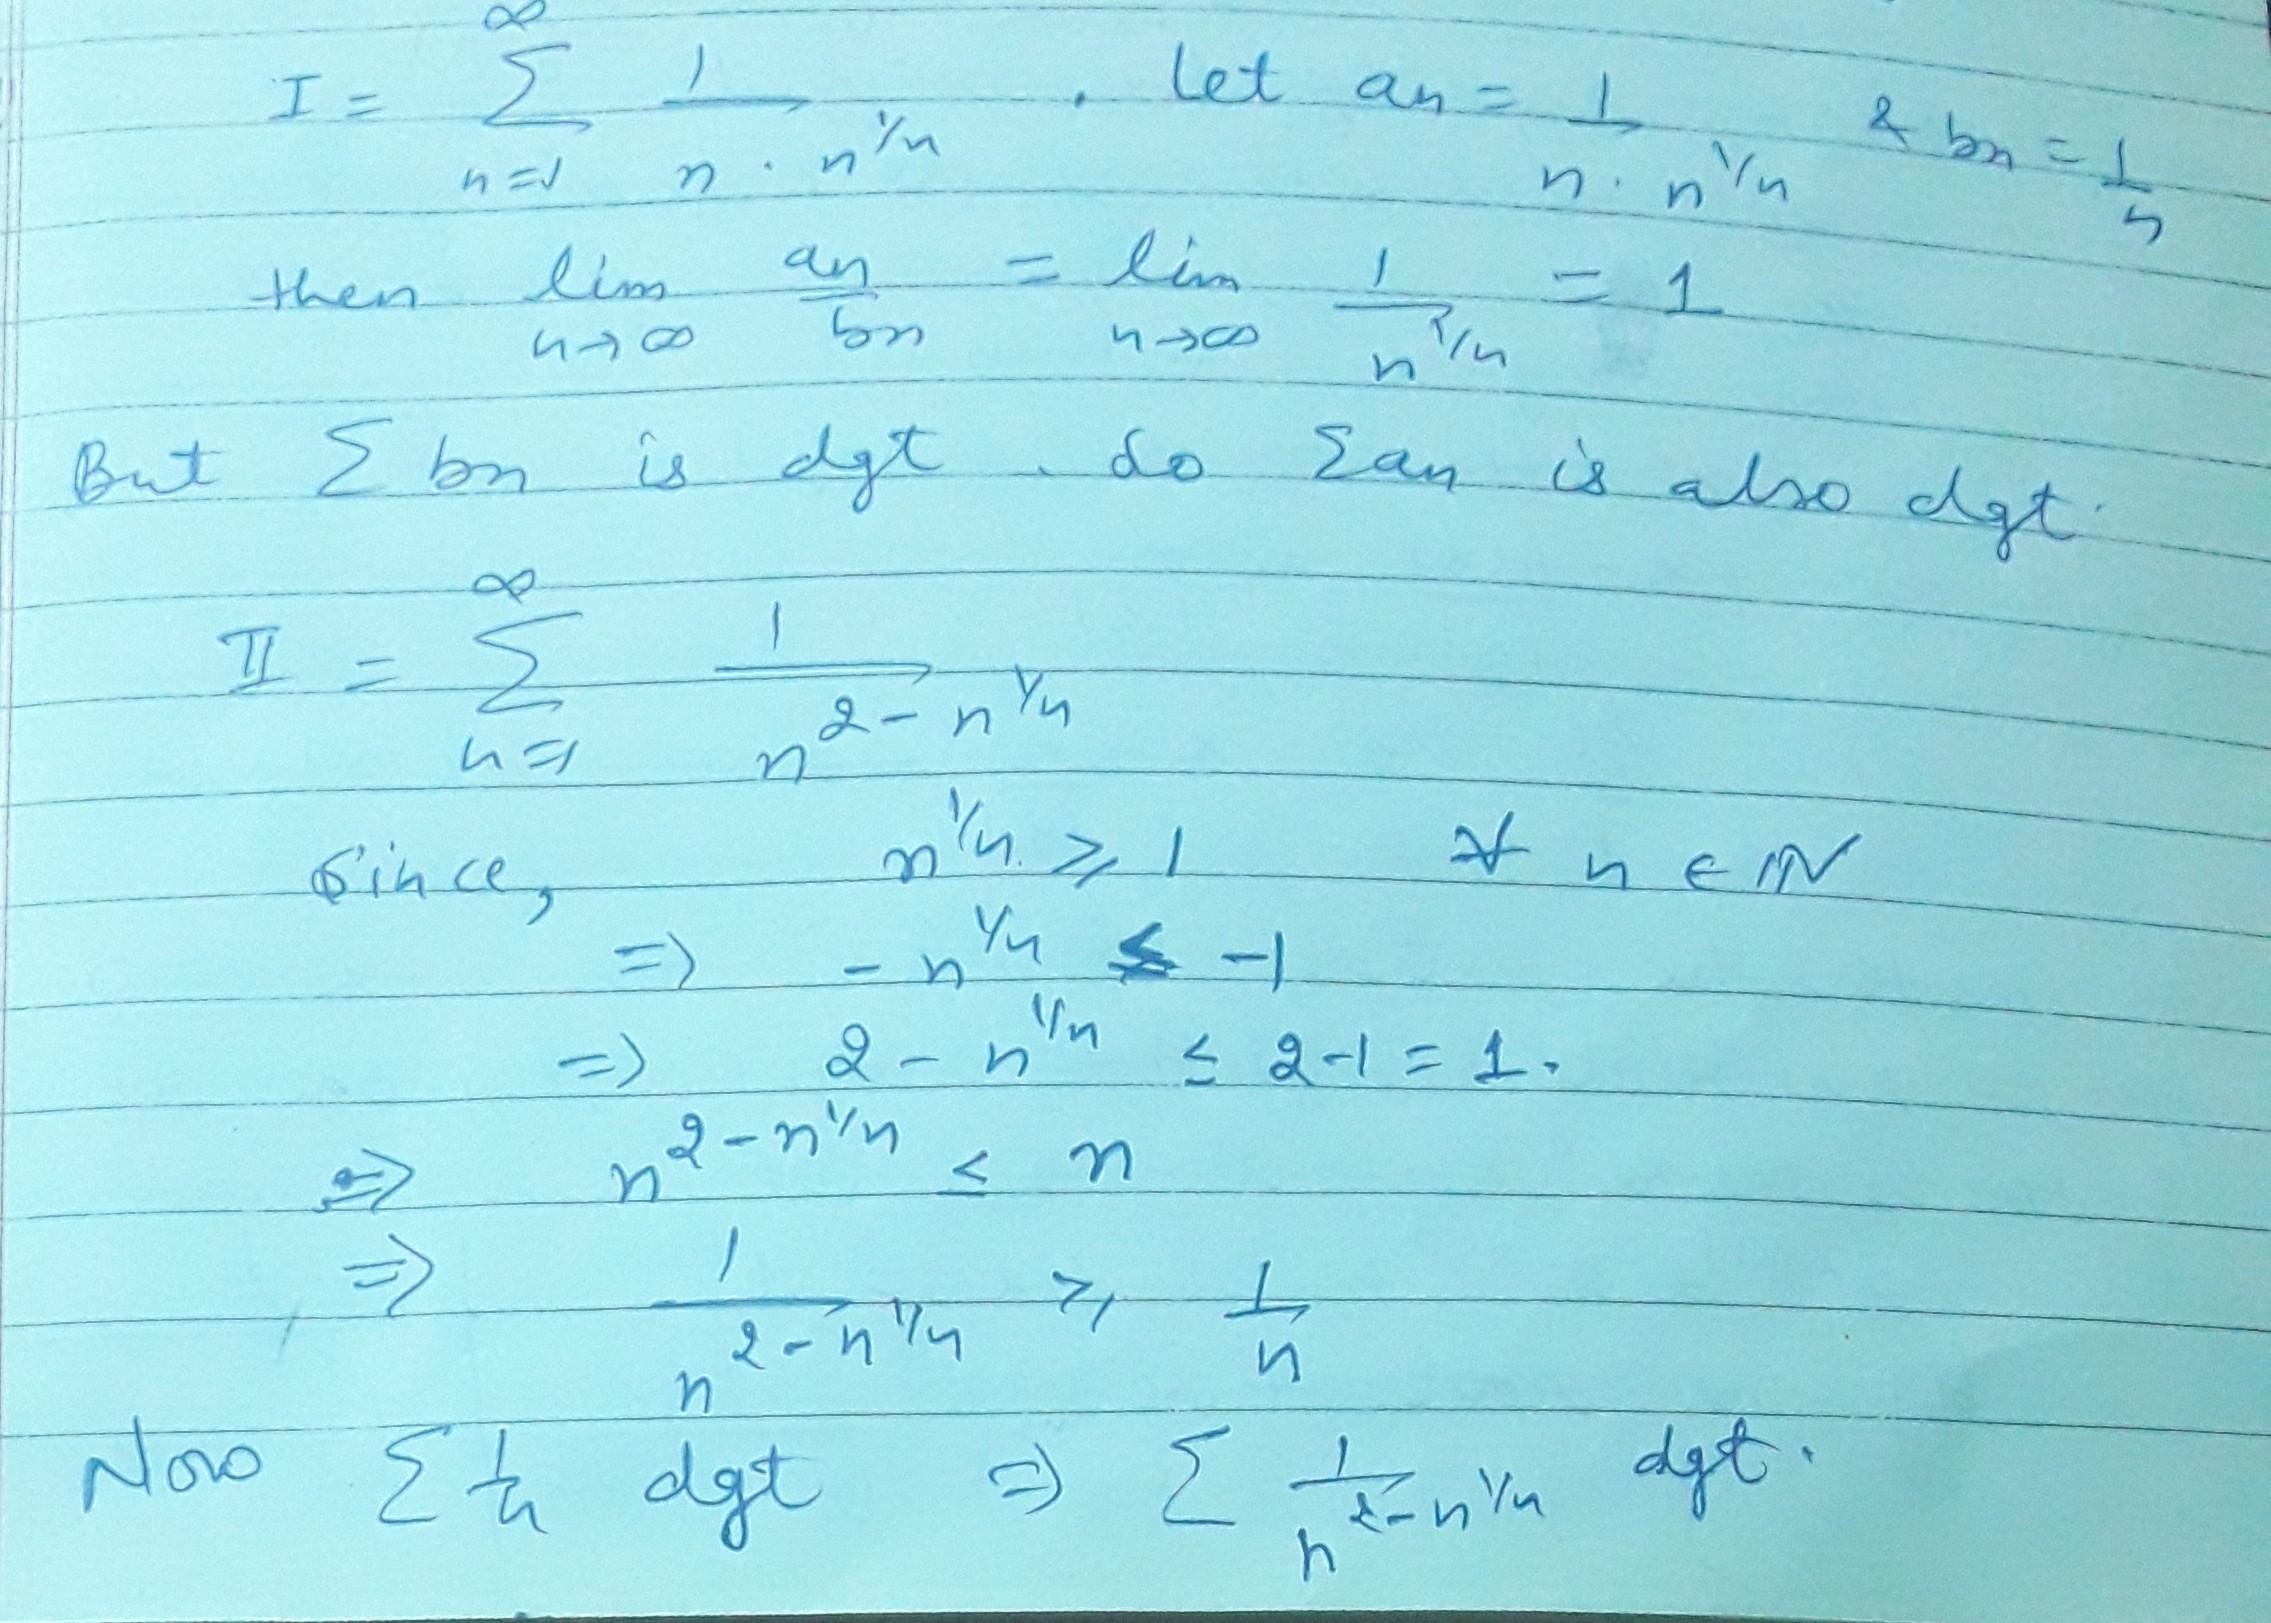 I = ∞ Σ n=1 1/(n · n^{1/n}) . Let an = 1/(n · n^{1/n}) & bn = 1/n
then lim n→∞ an/bn = lim n→∞ 1/n^{1/n} = 1
But Σ bn is dgt . So Σan is also dgt.
II = ∞ Σ n=1 1/n^{2-n^{1/n}}
Since, n^{1/n} ≥ 1 ∀ n ∈ ℕ
⇒ -n^{1/n} ≤ -1
⇒ 2 - n^{1/n} ≤ 2-1 = 1.
⇒ n^{2-n^{1/n}} ≤ n
⇒ 1/n^{2-n^{1/n}} ≥ 1/n
Now Σ 1/n dgt ⇒ Σ 1/n^{2-n^{1/n}} dgt.